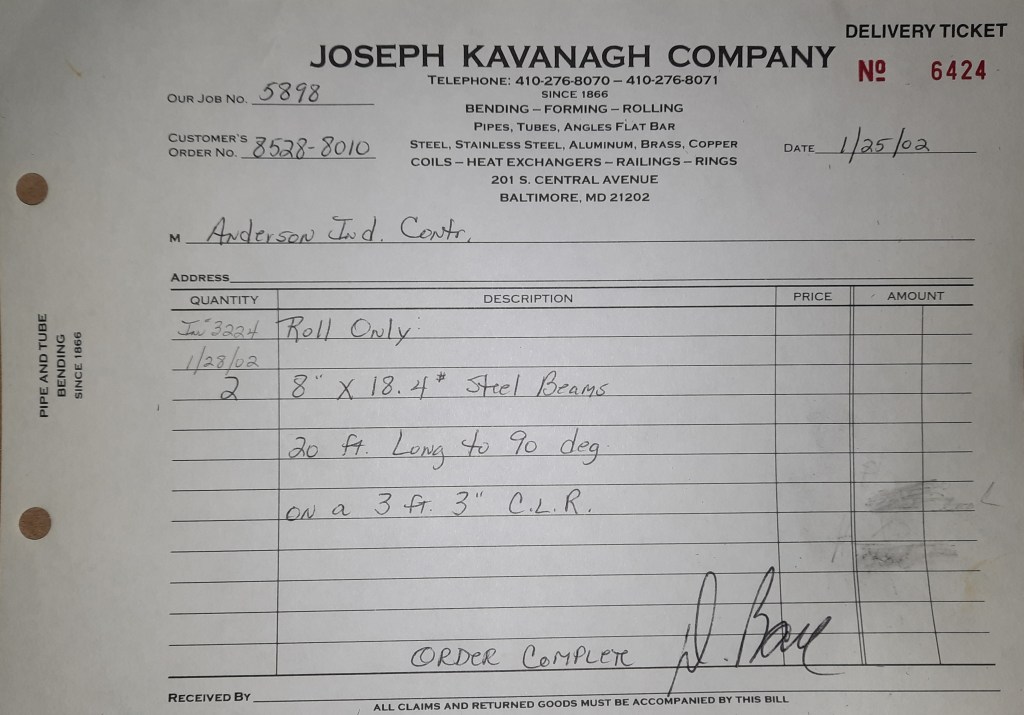 DELIVERY TICKET
JOSEPH KAVANAGH COMPANY
Nº 6424
TELEPHONE: 410-276-8070 – 410-276-8071
SINCE 1866
OUR JOB NO. 5898
BENDING – FORMING – ROLLING
PIPES, TUBES, ANGLES FLAT BAR
CUSTOMER'S
ORDER NO. 8528-8010
STEEL, STAINLESS STEEL, ALUMINUM, BRASS, COPPER
DATE 1/25/02
COILS – HEAT EXCHANGERS – RAILINGS – RINGS
201 S. CENTRAL AVENUE
BALTIMORE, MD 21202
M Anderson Ind. Contr.
ADDRESS
QUANTITY DESCRIPTION PRICE AMOUNT
Inv# 3224 Roll Only
1/28/02
2 8" X 18.4# Steel Beams
20 ft. Long to 90 deg.
on a 3 ft. 3" C.L.R.
ORDER COMPLETE
RECEIVED BY
ALL CLAIMS AND RETURNED GOODS MUST BE ACCOMPANIED BY THIS BILL
PIPE AND TUBE
BENDING
SINCE 1866